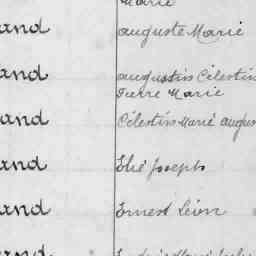 Marie
and Auguste Marie
and Augustin Célestin
Pierre Marie
and Célestin Marie Augus
and Elié Joseph
and Ernest Léon
and